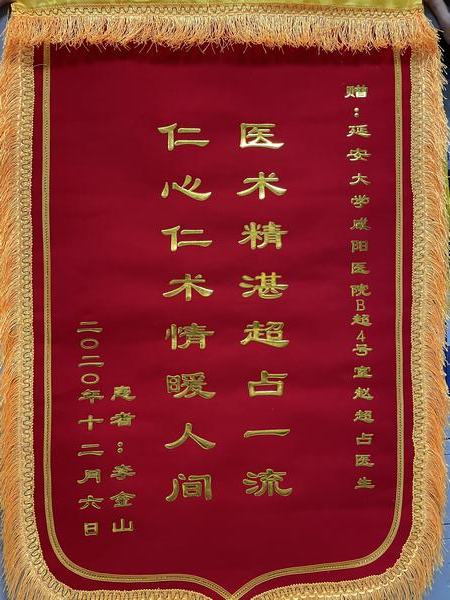 赠：延安大学咸阳医院B超4号室赵超占医生
医术精湛超占一流
仁心仁术情暖人间
患者：李金山
二〇二〇年十二月六日